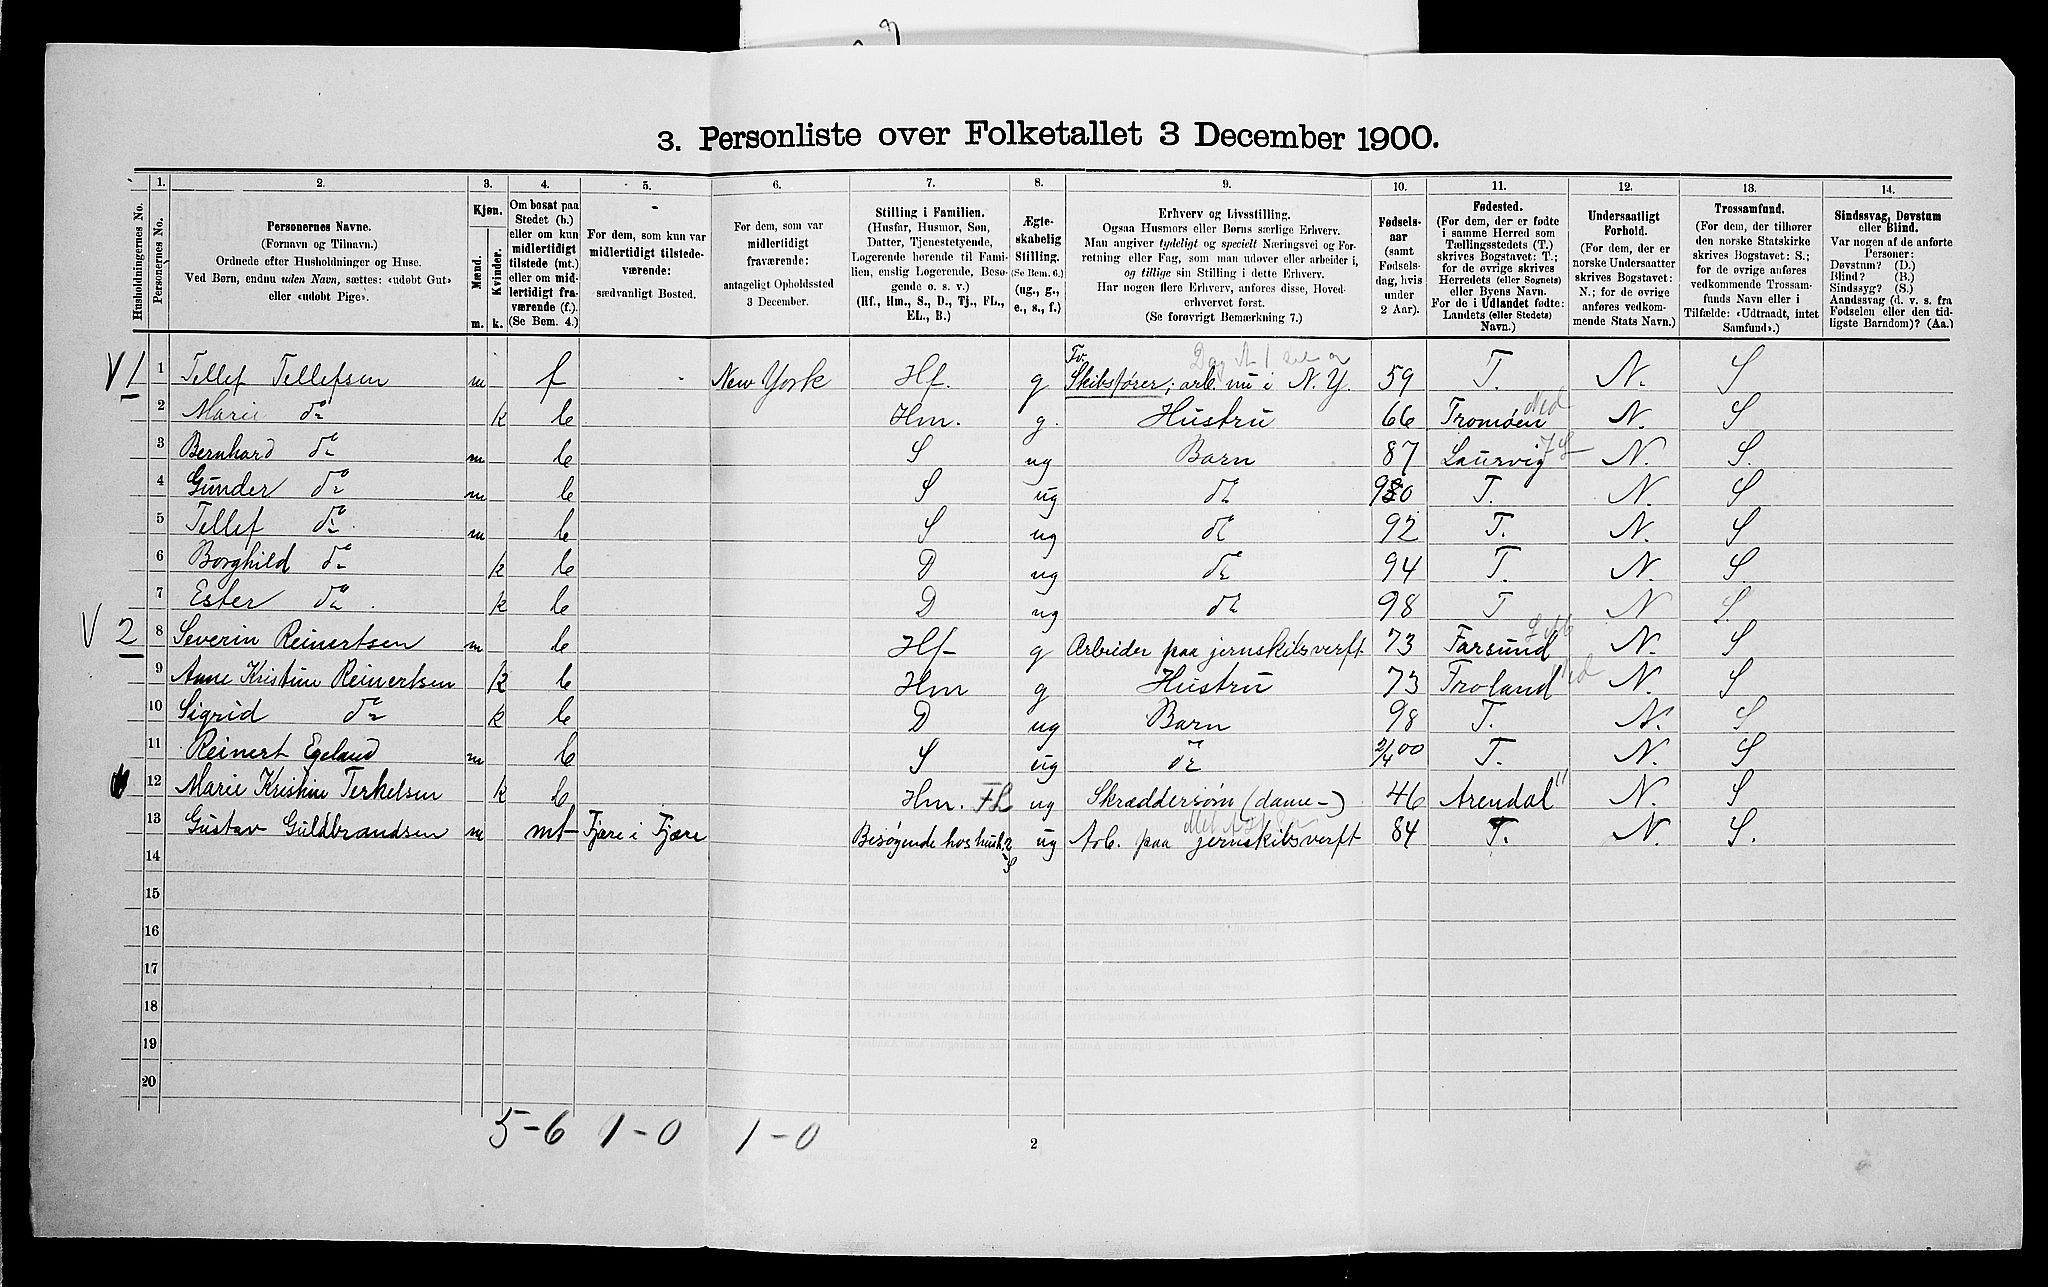 3. Personliste over Folketallet 3 December 1900.
Husholdningernes No.
1. Personernes No.
2. Personernes Navne.
(Fornavn og Tilnavn.)
Ordnede efter Husholdninger og Huse.
Ved Børn, endnu uden Navn, sættes: «udøbt Gut»
eller «udøbt Pige».
3. Kjøn.
Mænd. Kvinder.
m. k.
4. Om bosat paa
Stedet (b.)
eller om kun
midlertidigt
tilstede (mt.)
eller om mid-
lertidigt fra-
værende (f.).
(Se Bem. 4.)
5. For dem, som kun var
midlertidigt tilstede-
værende:
sædvanligt Bosted.
6. For dem, som var
midlertidigt
fraværende:
antageligt Opholdssted
3 December.
7. Stilling i Familien.
(Husfar, Husmor, Søn,
Datter, Tjenestetyende,
Logerende hørende til Fami-
lien, enslig Logerende, Besø-
gende o. s. v.)
(Hf., Hm., S., D., Tj., FL.,
EL., B.)
8. Ægte-
skabelig
Stilling.
(Se Bem. 6.)
(ug., g.,
e., s., f.)
9. Erhverv og Livsstilling.
Ogsaa Husmors eller Børns særlige Erhverv.
Man angiver tydeligt og specielt Næringsvei og For-
retning eller Fag, som man udøver eller arbeider i,
og tillige sin Stilling i dette Erhverv.
Har nogen flere Erhverv, anføres disse, Hoved-
erhvervet først.
(Se forøvrigt Bemærkning 7.)
10. Fødsels-
aar
(samt
Fødsels-
dag, hvis
under
2 Aar).
11. Fødested.
(For dem, der er fødte
i samme Herred som
Tællingsstedets (T.)
skrives Bogstavet: T.;
for de øvrige skrives
Herredets (eller Sognets)
eller Byens Navn.
For de i Udlandet fødte:
Landets (eller Stedets)
Navn.)
12. Undersaatligt
Forhold.
(For dem, der er
norske Undersaatter
skrives Bogstavet:
N.; for de øvrige
anføres vedkom-
mende Stats Navn.)
13. Trossamfund.
(For dem, der tilhører
den norske Statskirke
skrives Bogstavet: S.;
for de øvrige anføres
vedkommende Trossam-
funds Navn eller i
Tilfælde: «Udtraadt, intet
Samfund».)
14. Sindssvag, Døvstum
eller Blind.
Var nogen af de anførte
Personer:
Døvstum? (D.)
Blind? (B.)
Sindssyg? (S.)
Aandssvag (d. v. s. fra
Fødselen eller den tid-
ligste Barndom)? (Aa.)
V 1 1 Tellef Tellefsen m f New York Hf. g Fv. Skibsfører; arb. nu i N. Y. 59 T. N. S
2 Marie do k b Hm. g. Hustru 66 Tromøen Ned N. S
3 Bernhard do m b S ug Barn 87 Laurvig N. S.
4 Gunder do m b S ug do 90 T. N. S
5 Tellef do m b S ug do 92 T. N. S
6 Borghild do k b D ug do 94 T. N. S
7 Ester do k b D ug do 98 T N S
V 2 8 Severin Reinertsen m b Hf g Arbeider paa jernskibsverft 73 Farsund N. S
9 Anne Kristine Reinertsen k b Hm g Hustru 73 Froland N. S
10 Sigrid do k b D ug Barn 98 T. N. S
11 Reinert Egeland m b S ug do 2/4 00 T. N. S
12 Marie Kristine Terkelsen k b Hm. FL ug Skræddersøm (dame-) 46 Arendal N. S
13 Gustav Guldbrandsen m mt Fjære i Fjære Besøgende hos hush. 2 S ug Arb. paa jernskibsverft 84 T. N. S.
14
15
16
17
18
19
20
5-6 1-0 1-0
2